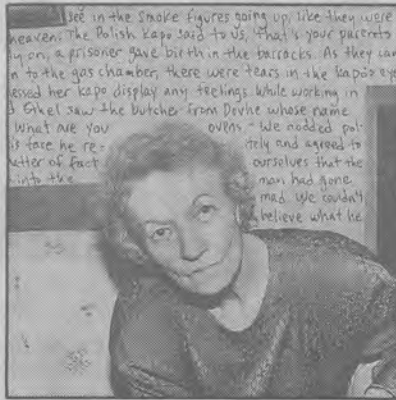 see in the smoke figures going up, like they were
heaven. The Polish kapo said to us, that's your parents
ly on, a prisoner gave birth in the barracks. As they cam
n to the gas chamber, there were tears in the kapo's eye
essed her kapo display any feelings while working in
d Ethel saw the butcher from Dovhe whose name
What are you ovens - We nodded pol-
is face he re- itely and agreed to
atter of fact ourselves that the
into the man had gone
mad. We couldn't
believe what he